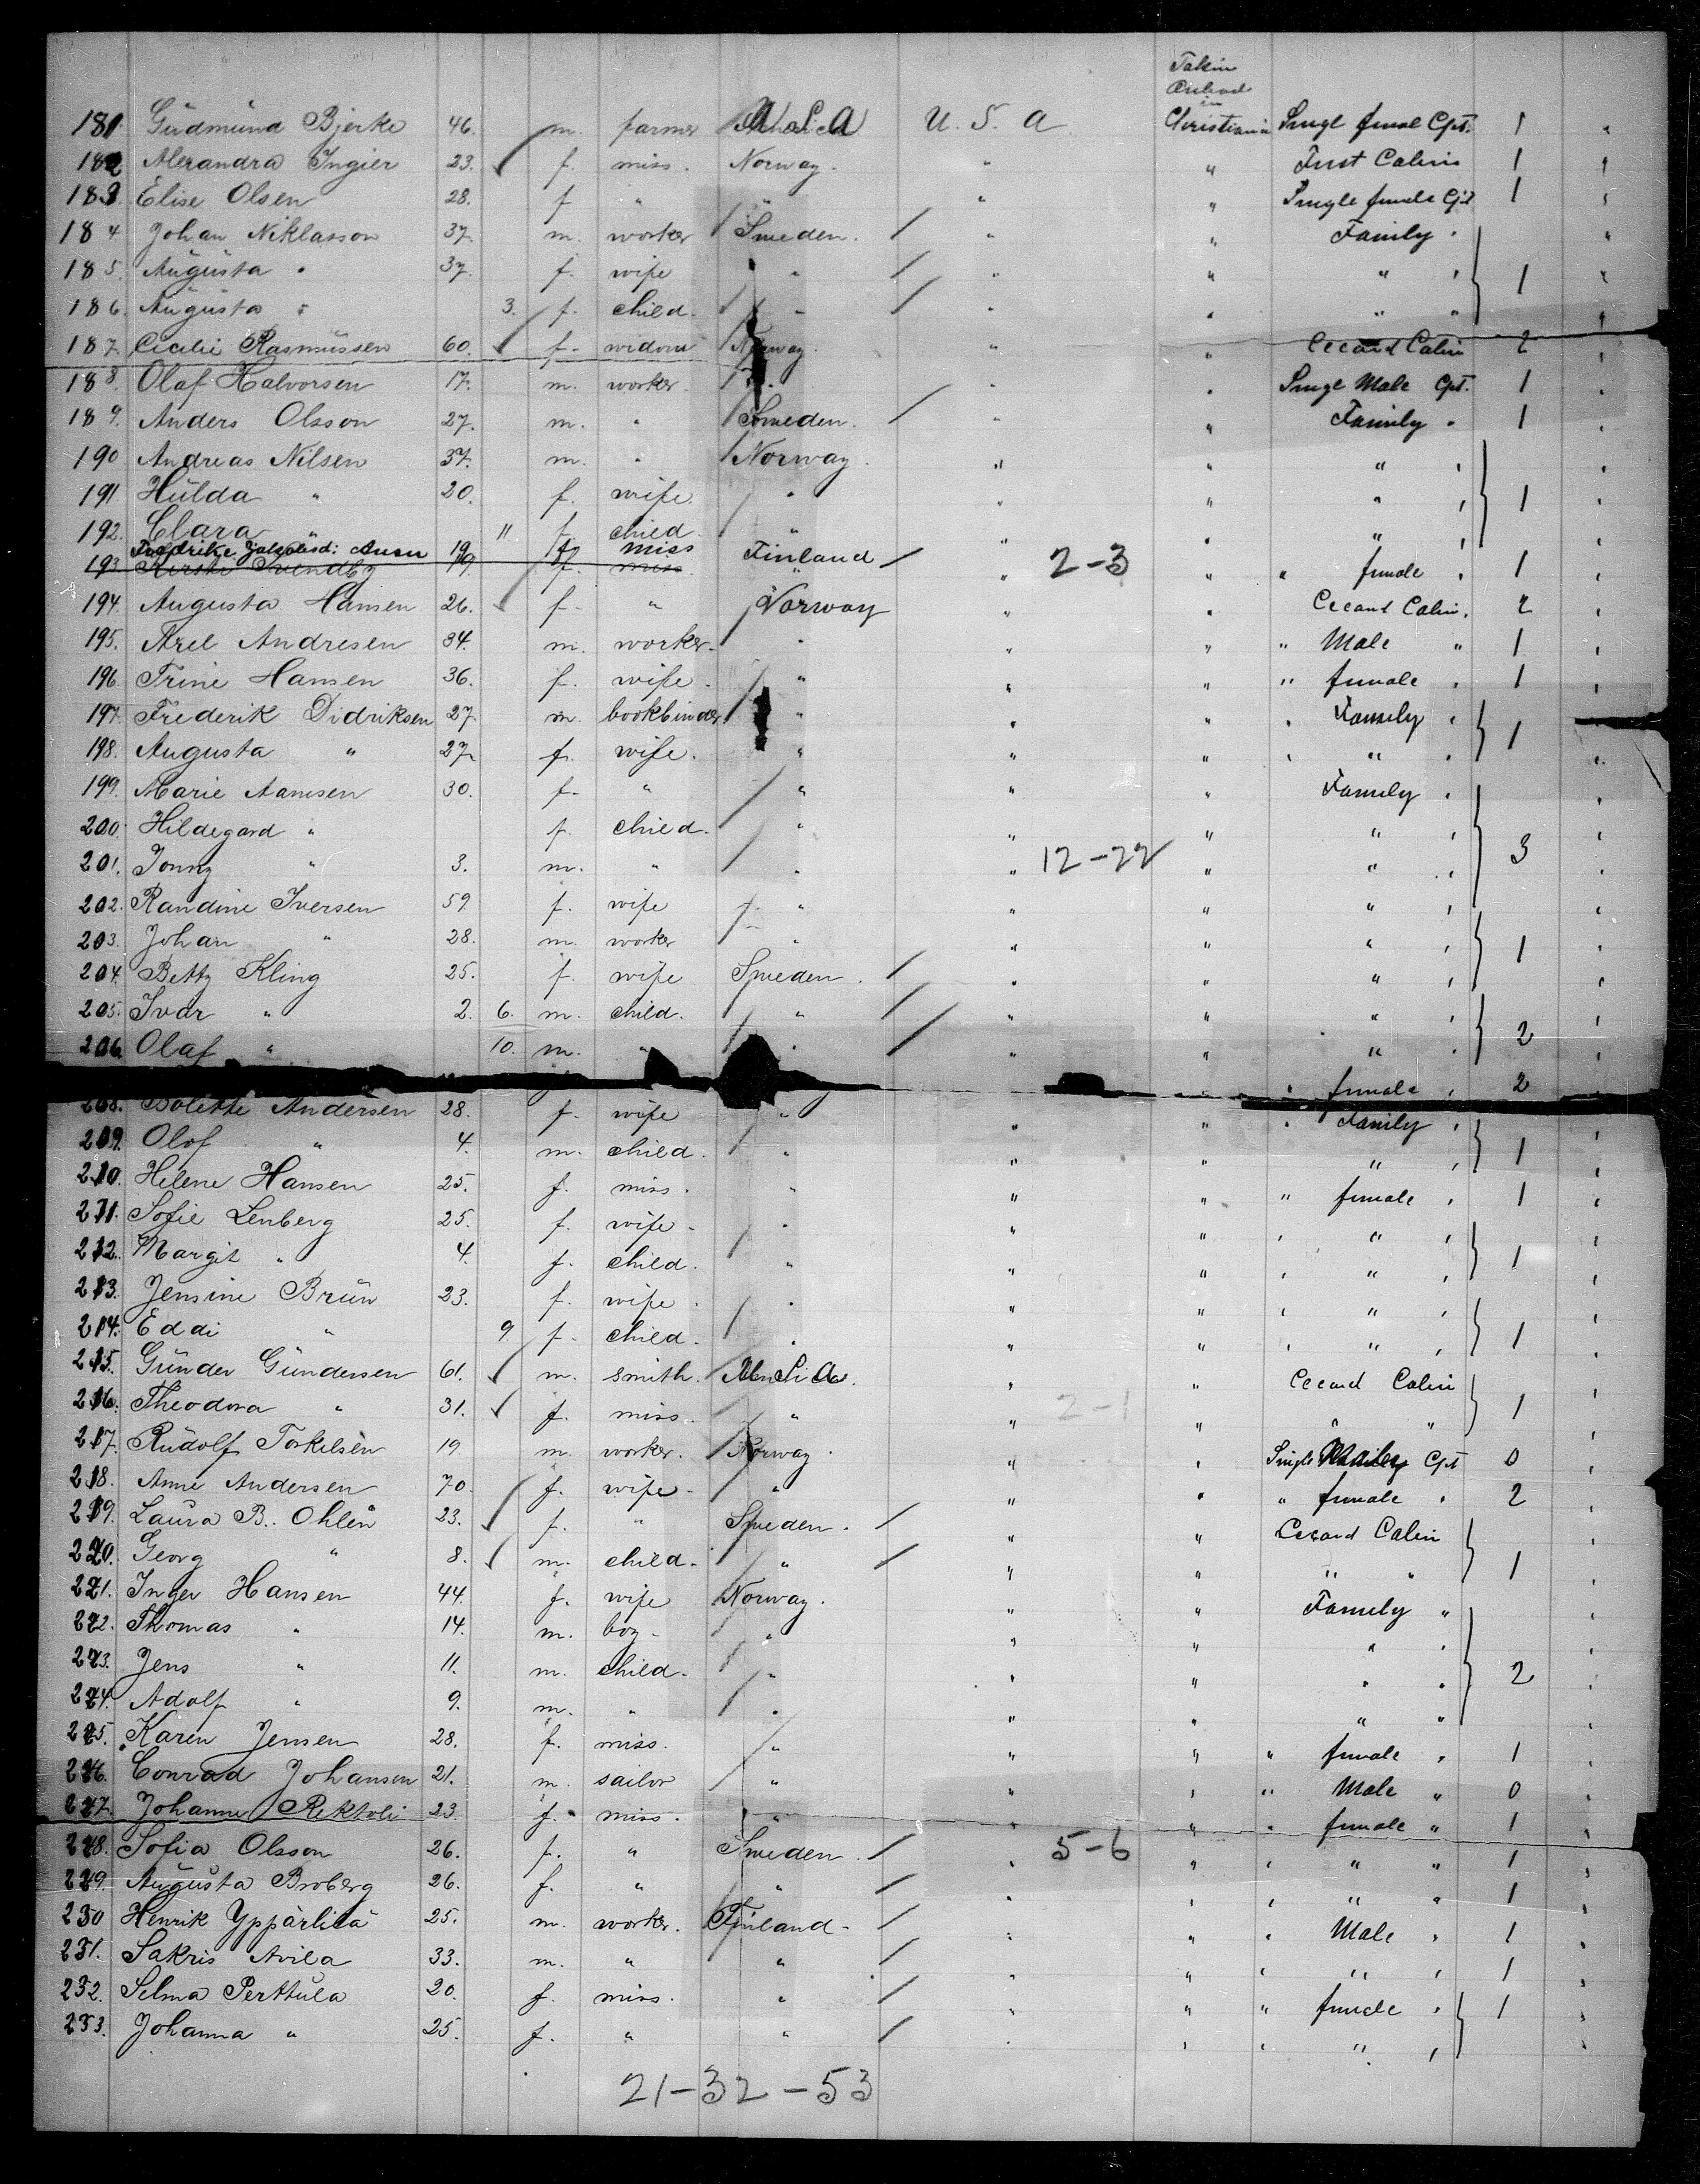 Takin
Onbord
in
181. Gudmund Bjerke 46. m. farmer U. S. A U. S. A Christiania Single femal Cpt. 1 "
182 Alexandra Ingier 23. ✓ f. miss. Norway. " " First Cabin 1 "
183. Elise Olsen 28. f " " " " Single female Cpt 1 "
184 Johan Niklasson 37. m. worker Sweden. / " " Family " "
185. Augusta " 37. f. wife " / " " " " } 1 "
186. Augusta " 3. f. child. " / " " " " "
187. Cecilie Rasmussen 60. ✓ f. widow Norway. " " Cecond Cabin 2 "
188. Olaf Halvorsen 17. m. worker. " " " Single Male Cpt. 1 "
189. Anders Olsson 27. m. " Sweden. / " " Family " 1 "
190 Andreas Nilsen 37. m. " Norway. " " " " "
191. Hulda " 20. f. wife. " " " " " } 1 "
192. Clara " 11 f. child " " " " " "
Jakobsd: Auen 19 f. miss
193. 19. f. miss Finland / " 2-3 " " female " 1 "
194. Augusta Hansen 26. ✓ f. " Norway " " Cecond Cabin. 2 "
195. Axel Andresen 34. m. worker. " " " " Male " 1 "
196. Trine Hansen 36. f. wife. " " " " female " 1 "
197. Frederik Didriksen 27. m. bookbinder " " " " Family "
198. Augusta " 27. f. wife. " " " " " " } 1 "
199. Marie Aamsen 30. f. " " " " Family " "
200. Hildegard " f. child. " " " " " "
201. Jonny " 3. m. " " " 12-22 " " " } 3 "
202. Randine Iversen 59. f. wife " " " " " "
203. Johan " 28. m. worker " " " " " } 1 "
204. Betty Kling 25. f. wife Sweden. / " " " " "
205. Ivar " 2. 6. m. child. " / " " " " "
206. Olaf " 10. m. " " / " " " " } 2 "
" female " 2 "
208. Bolette Andersen 28. f. wife " " " " Family " "
209. Olof " 4. m. child. " " " " " } 1 "
210. Helene Hansen 25. f. miss. " " " " female " 1 "
211. Sofie Lenberg 25. f. wife. " " " " " " "
212. Margit " 4. f. child. " " " " " " } 1 "
213. Jensine Brun 23. f. wife. " " " " " " "
214. Eddi " 9. f. child. " " " " " " } 1 "
215. Gunder Gundersen 61. ✓ m. smith. U. S. A. " " Cecond Cabin "
216. Theodora " 31. ✓ f. miss. " " 2-1 " " " } 1 "
217. Rudolf Torkilsen 19. m. worker. Norway. " " Single Cpt 0 "
218. Anne Andersen 70. f. wife. " " " " female " 2 "
219. Laura B. Ohlen 23. ✓ f. " Sweden. / " " Cecond Cabin "
220. Georg " 8. ✓ m. child. " / " " " " } 1 "
221. Inger Hansen 44. f. wife Norway. " " Family " "
222. Thomas " 14. m. boy. " " " " " "
223. Jens " 11. m. child. " " " " " } 2 "
224. Adolf " 9. m. " " " " " " "
225. Karen Jensen 28. f. miss. " " " " female " 1 "
226. Conrad Johansen 21. m. sailor " " " " Male " 0 "
227. Johanne 23. f. miss. " " " " female " 1 "
228. Sofia Olsson 26. f. " Sweden. / " 5-6 " " " " 1 "
229. Augusta Broberg 26. f. " " / " " " " " 1 "
230 Henrik 25. m. worker. Finland. / " " " Male " 1 "
231. Sakris Avila 33. m. " " / " " " " " 1 "
232. Selma Perttula 20. f. miss. " / " " " female " } 1 "
233. Johanna " 25. f. " " / " " " " " "
21-32-53